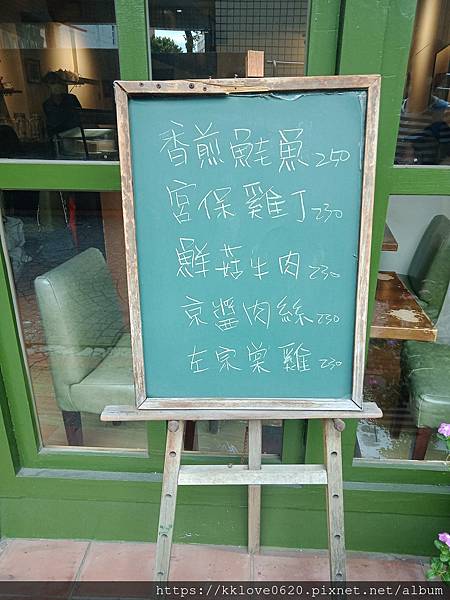 香煎鮭魚 250
宮保雞丁 230
鮮菇牛肉 230
京醬肉絲 230
左宗棠雞 230
https://kklove0620.pixnet.net/album